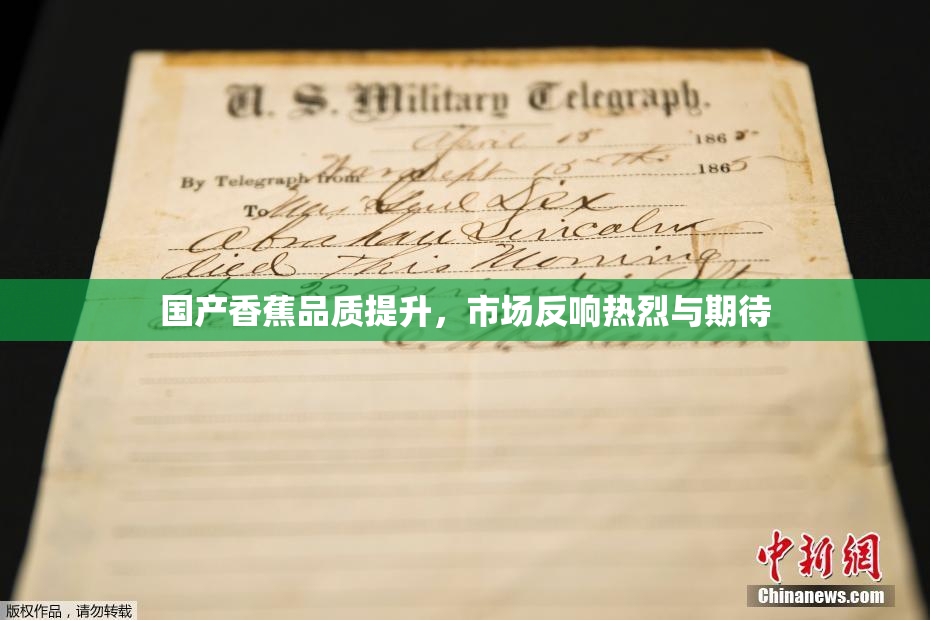 U. S. Military Telegraph.
April 15 1865
By Telegraph from War Dept 15th 1865
To Maj Genl Dix
Abraham Lincoln
died This Morning
at 22 minutes after
国产香蕉品质提升，市场反响热烈与期待
中新网
Chinanews.com
版权作品，请勿转载